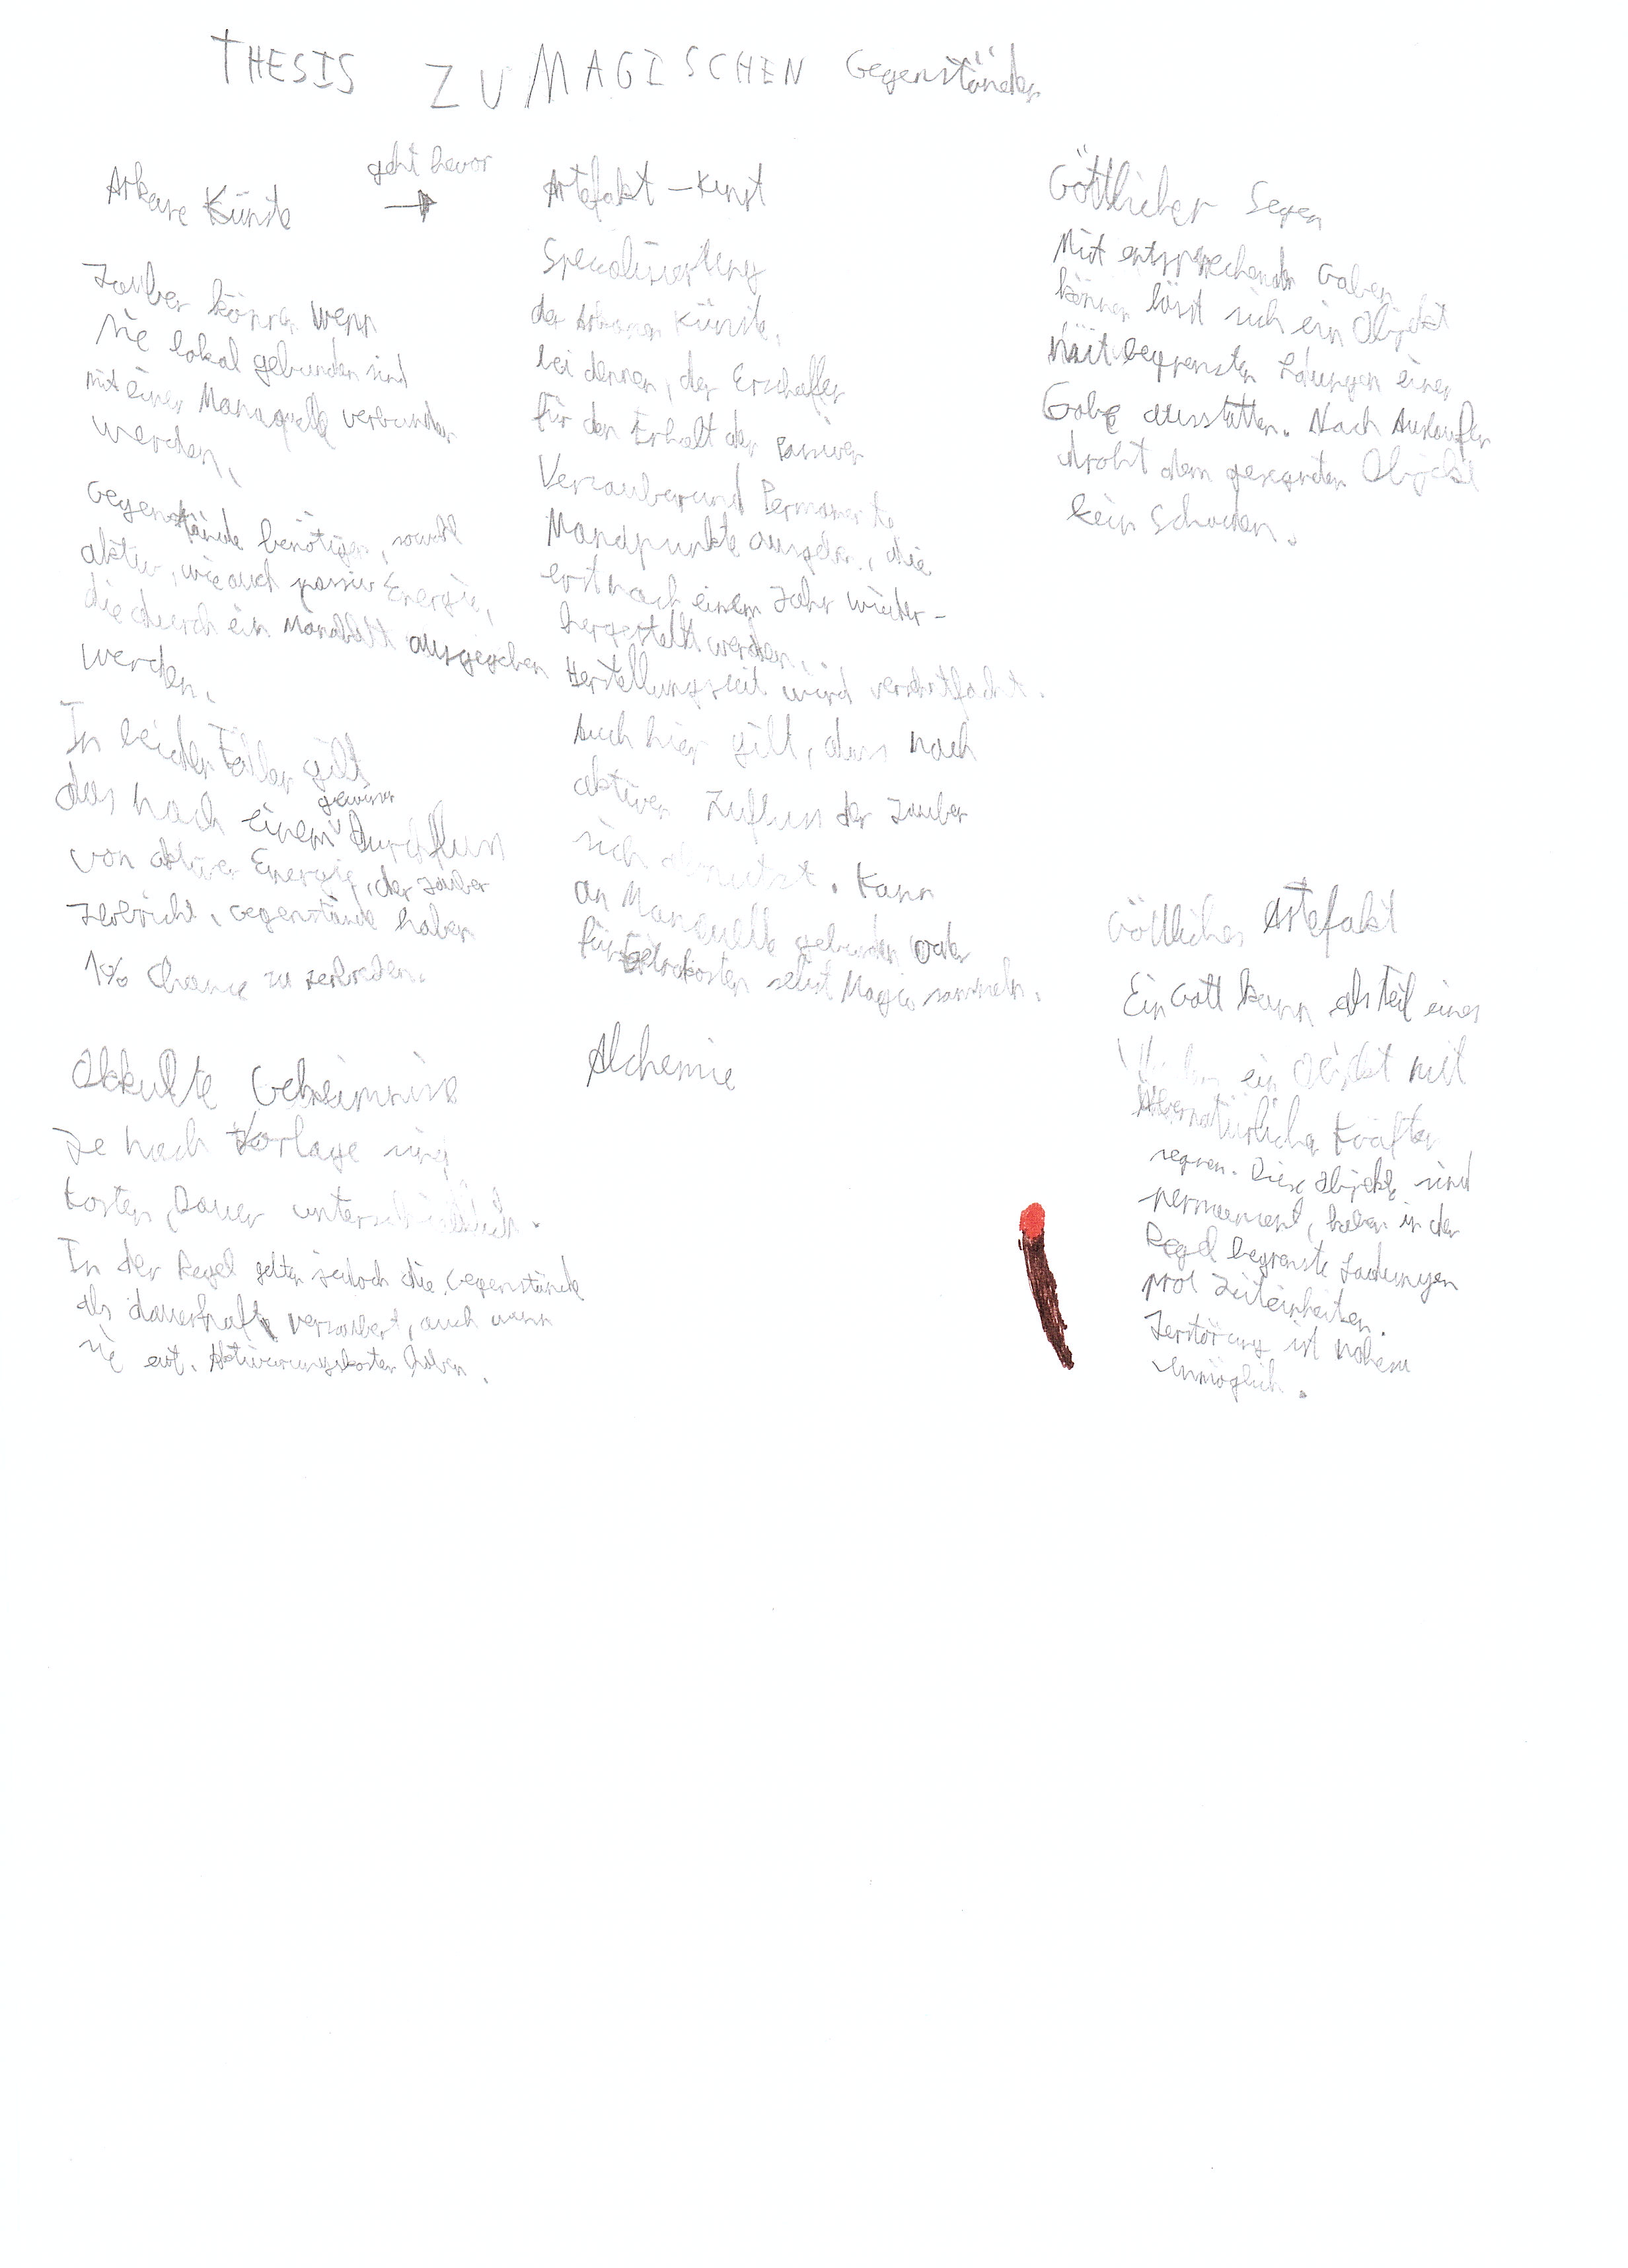 THESIS ZU MAGISCHEN Gegenständen
Arkane Künste
geht hervor
Zauber können wenn
sie lokal gebunden sind
mit einer Manaquelle verbunden
werden.
Gegenstände benötigen, sowohl
aktiv, wie auch passiv Energie,
die durch ein ausgegeben
werden.
In beiden Fällen gilt
das nach einem gewissen Durchfluss
von aktiver Energie, der Zauber
zerbricht. Gegenstände haben
1% Chance zu zerbrechen.
Okkulte Geheimniss
Je nach Vorlage sind
Kosten, Dauer unterschiedlich.
In der Regel gelten jedoch die Gegenstände
als dauerhaft verzaubert, auch wenn
sie evt. Aktivierungskosten haben.
Artefakt-Kunst
Spezialisierung
der Arkanen Künste,
bei dennen, der Erschaffer
für den Erhalt der Passiven
Verzauberund Permanente
Manapunkte ausgeben, die
erst nach einem Jahr wieder-
hergestellt werden.
Herstellungszeit wird
Auch hier gilt, dass nach
aktiven Zufluss der Zauber
sich abnutzt. Kann
an Manaquelle gebunden oder
für Extrakosten selbst Magie sammeln.
Alchemie
Göttlicher Segen
Mit entsprechenden Gaben
können lässt sich ein Objekt
mit begrenzten Ladungen einer
Gabe ausstatten. Nach Auslaufen
droht dem gesegneten Objekt
kein Schaden.
Göttliches Artefakt
Ein Gott kann als Teil eines
ein Objekt mit
übernatürlichen Kräften
segnen. Diese Objekte sind
permanent, haben in der
Regel begrenzte Ladungen
pro Zeiteinheiten.
Zerstörung ist nahezu
unmöglich.